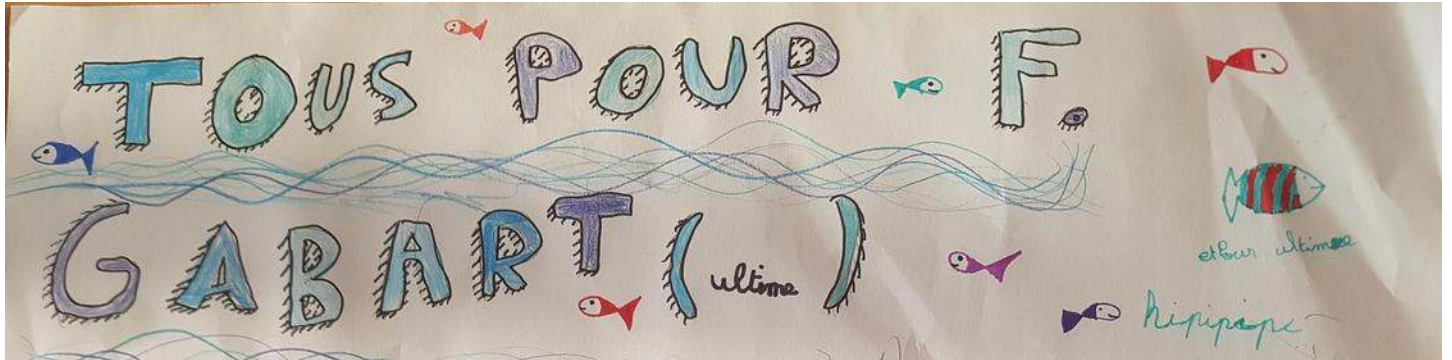 TOUS POUR F.
GABART (ultime)
ultime
hipipipe